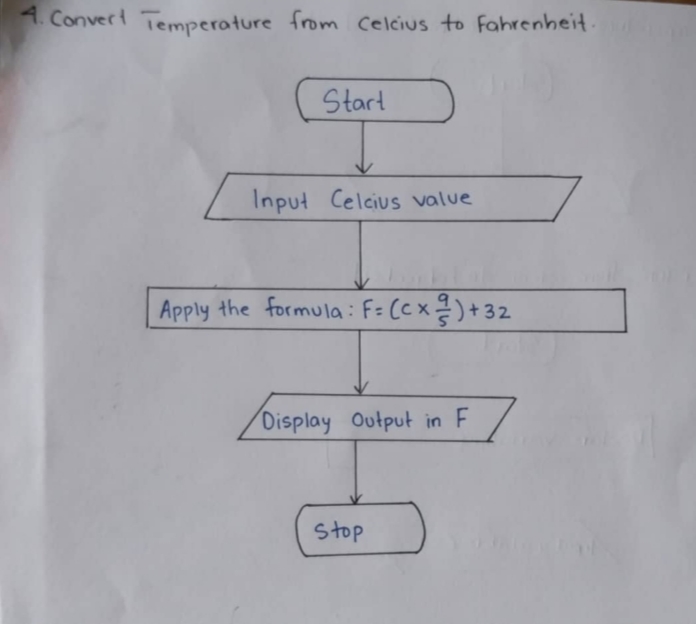 4. Convert Temperature from Celcius to Fahrenheit.
Start
Input Celcius value
Apply the formula: F=(C×9/5)+32
Display Output in F
Stop